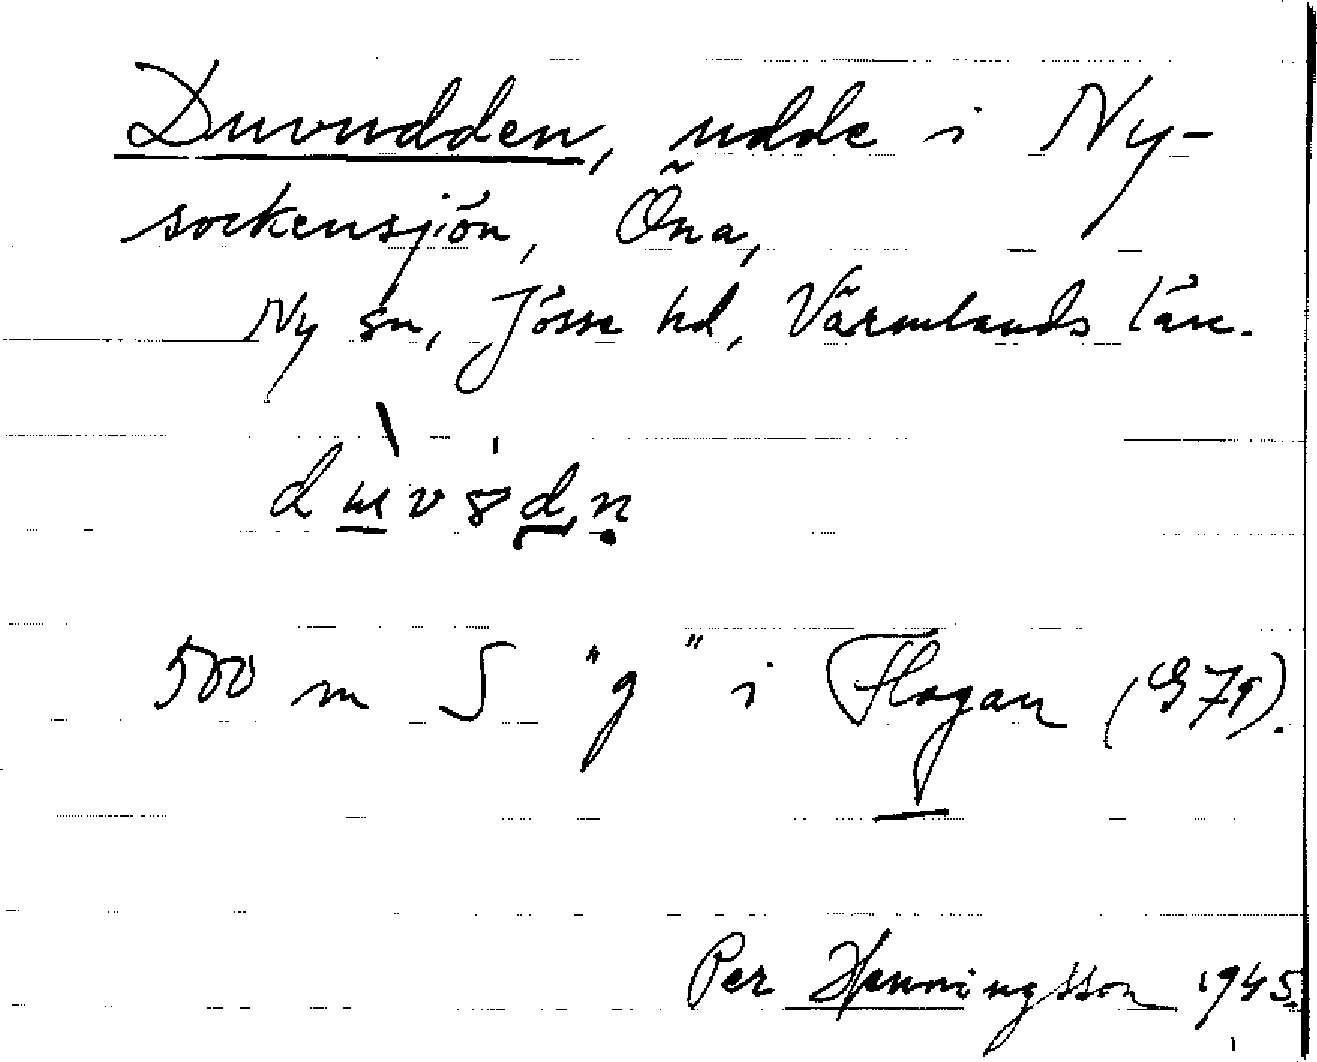 Duvudden, udde i Ny-
sockensjön, Öna,
Ny sn, Jösse hd, Värmlands län.
500 m S "g" i Flagan (G79).
Per Henningsson 1945.